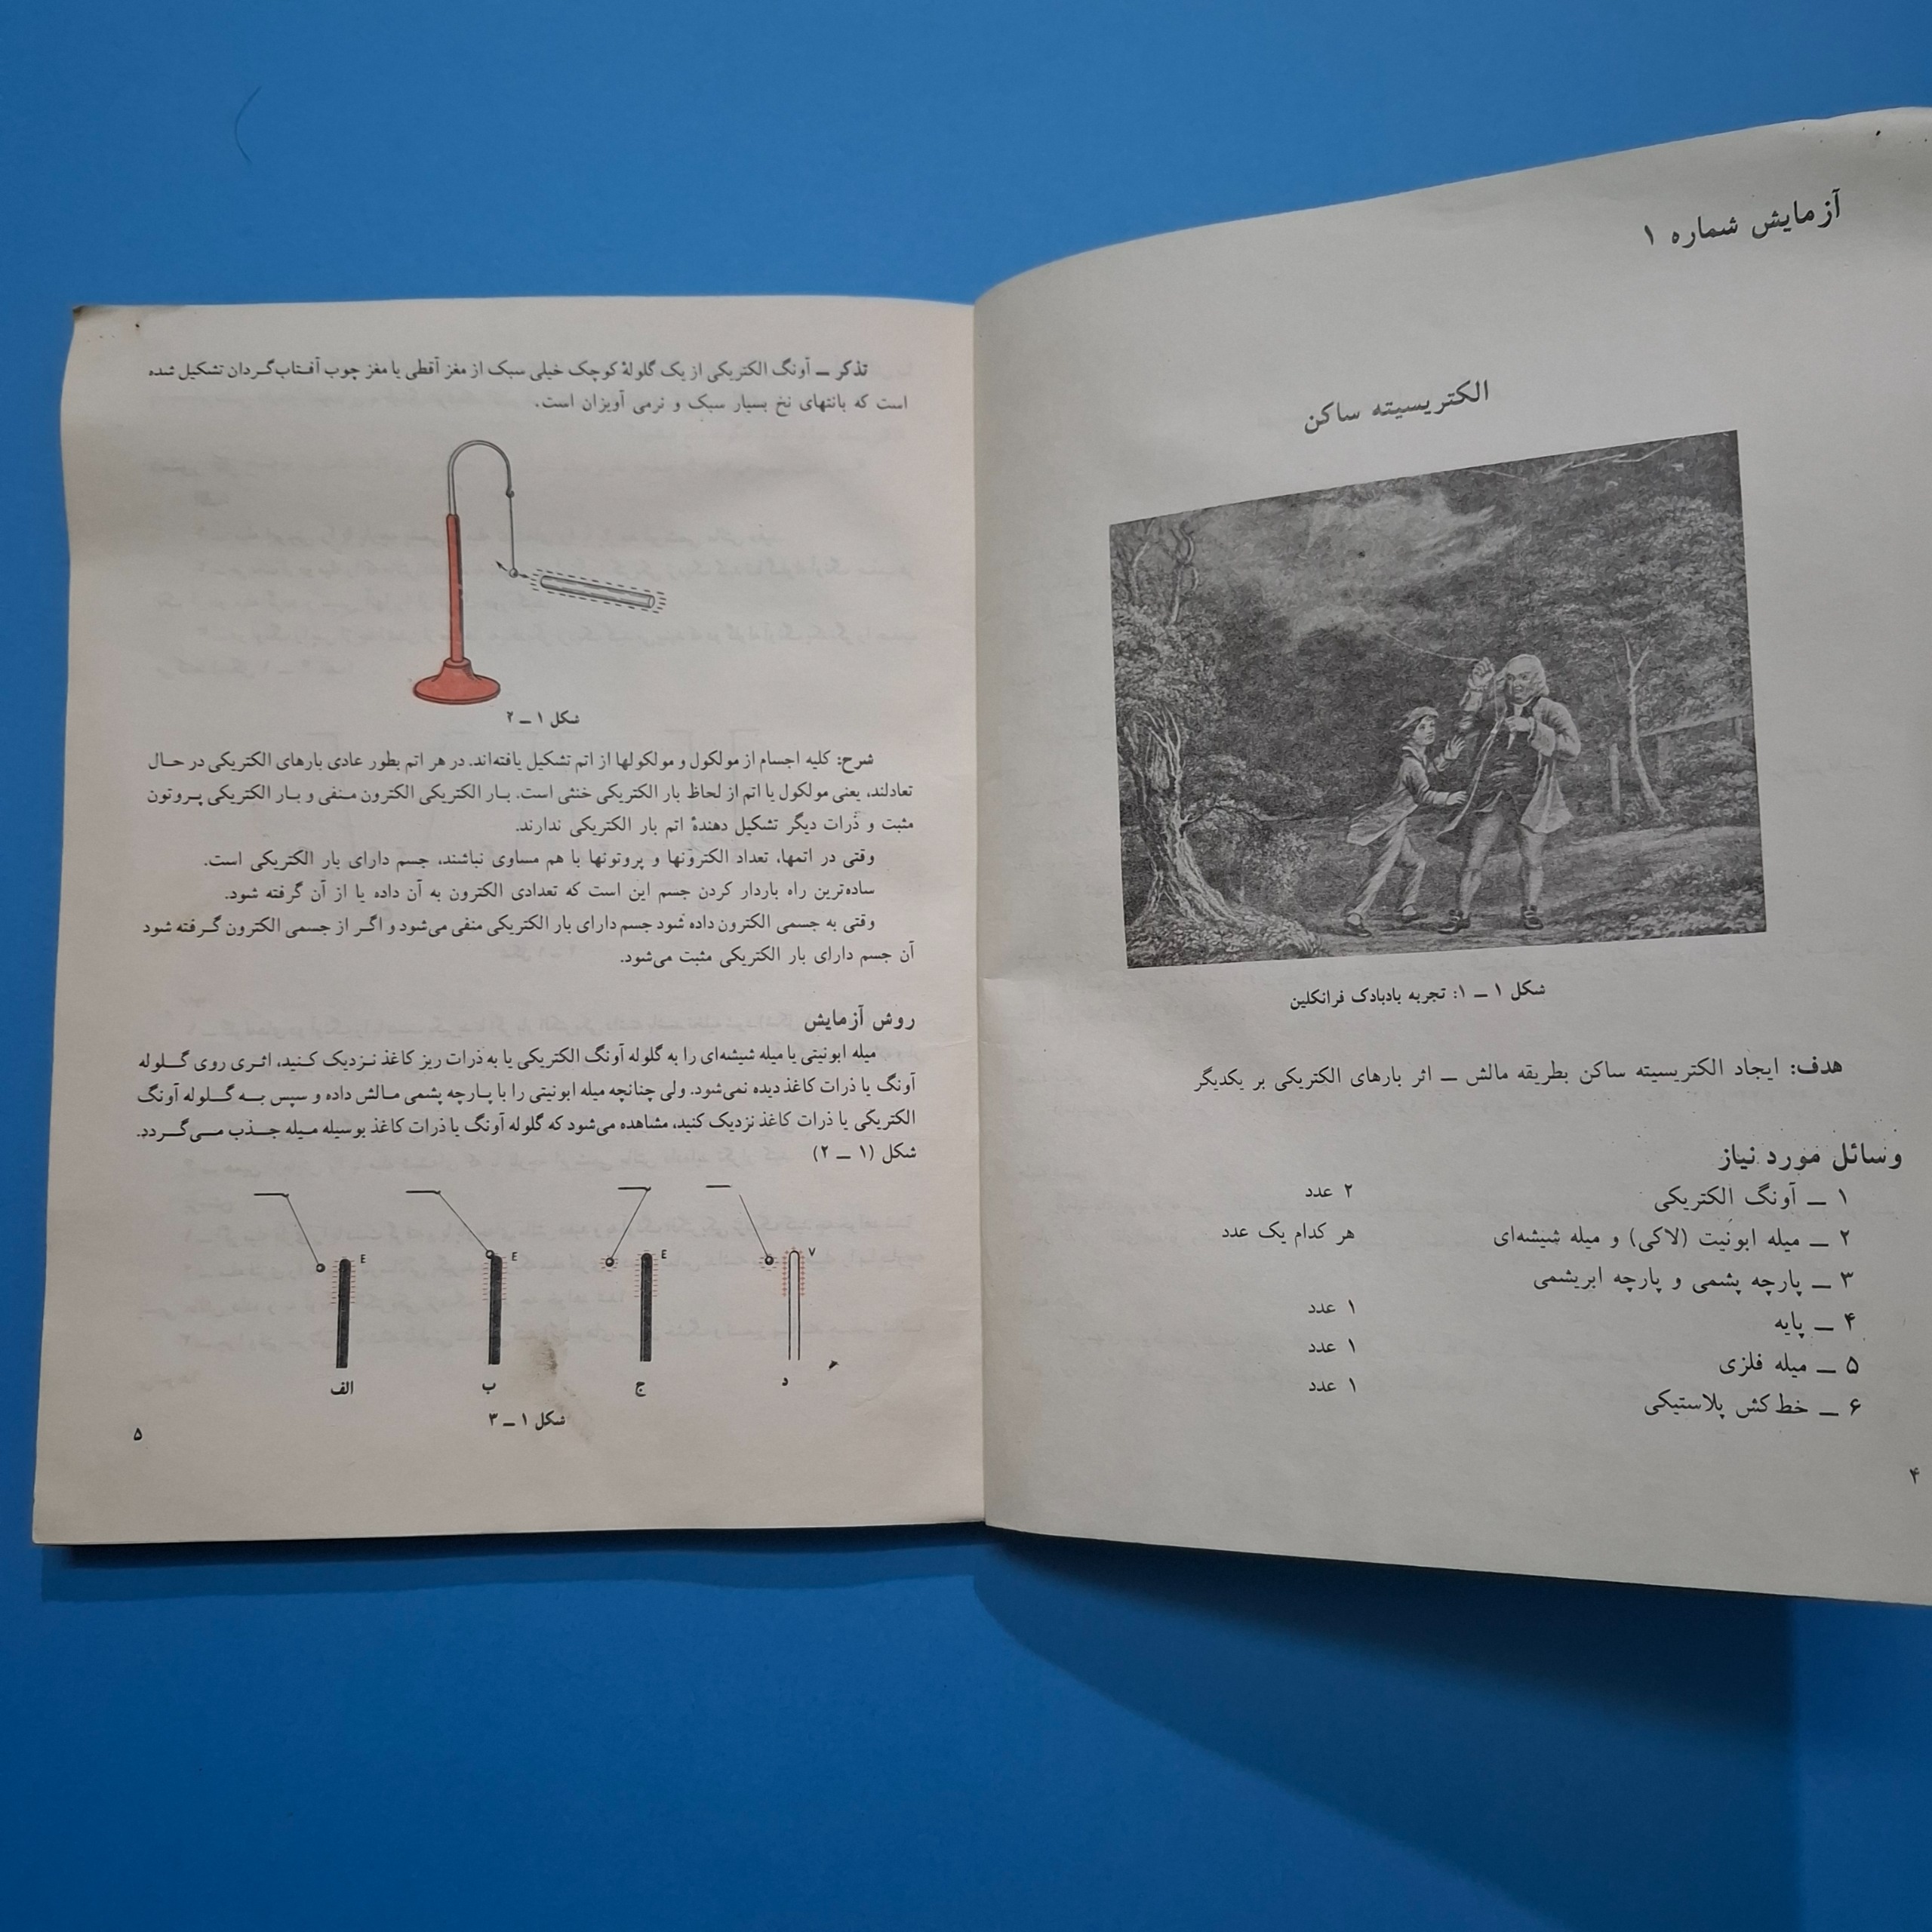 آزمایش شماره ۱
الکتریسیته ساکن
شکل ۱ – ۱: تجربه بادبادک فرانکلین
هدف: ایجاد الکتریسیته ساکن بطریقه مالش – اثر بارهای الکتریکی بر یکدیگر
وسائل مورد نیاز
۱ – آونگ الکتریکی ۲ عدد
۲ – میله ابونیت (لاکی) و میله شیشه‌ای هر کدام یک عدد
۳ – پارچه پشمی و پارچه ابریشمی
۴ – پایه ۱ عدد
۵ – میله فلزی ۱ عدد
۶ – خط‌کش پلاستیکی ۱ عدد
۴
تذکر – آونگ الکتریکی از یک گلولهٔ کوچک خیلی سبک از مغز آقطی یا مغز چوب آفتاب‌گردان تشکیل شده
است که بانتهای نخ بسیار سبک و نرمی آویزان است.
شکل ۱ – ۲
شرح: کلیه اجسام از مولکول و مولکولها از اتم تشکیل یافته‌اند. در هر اتم بطور عادی بارهای الکتریکی در حال
تعادلند، یعنی مولکول یا اتم از لحاظ بار الکتریکی خنثی است. بار الکتریکی الکترون منفی و بار الکتریکی پروتون
مثبت و ذرات دیگر تشکیل دهندهٔ اتم بار الکتریکی ندارند.
وقتی در اتمها، تعداد الکترونها و پروتونها با هم مساوی نباشند، جسم دارای بار الکتریکی است.
ساده‌ترین راه باردار کردن جسم این است که تعدادی الکترون به آن داده یا از آن گرفته شود.
وقتی به جسمی الکترون داده شود جسم دارای بار الکتریکی منفی می‌شود و اگر از جسمی الکترون گرفته شود
آن جسم دارای بار الکتریکی مثبت می‌شود.
روش آزمایش
میله ابونیتی یا میله شیشه‌ای را به گلوله آونگ الکتریکی یا به ذرات ریز کاغذ نزدیک کنید، اثری روی گلوله
آونگ یا ذرات کاغذ دیده نمی‌شود. ولی چنانچه میله ابونیتی را با پارچه پشمی مالش داده و سپس به گلوله آونگ
الکتریکی یا ذرات کاغذ نزدیک کنید، مشاهده می‌شود که گلوله آونگ یا ذرات کاغذ بوسیله میله جذب می‌گردد.
شکل (۱ – ۲)
V E E E
د ج ب الف
شکل ۱ – ۳
۵